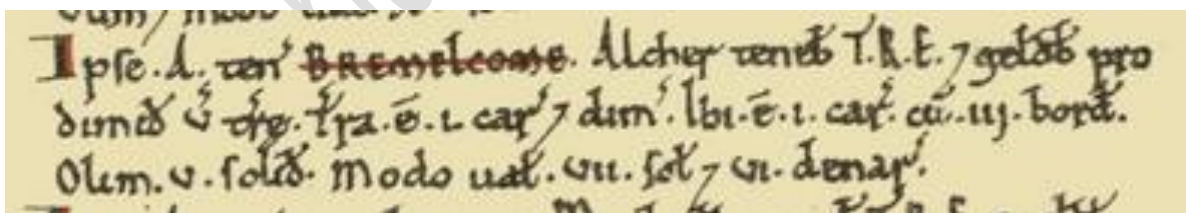 Ipse .A. ten̄ BREMELCOME. Alcher teneƀ T.R.E. ⁊ geldƀ pro
dimiđ v̓ træ. Tr̄a .ē .i. car̓ ⁊ dim̓. Ibi .ē .i. car̓. cū .iij. borđ.
Olim .v. soliđ. Modo ual̄. vii. sol̄ ⁊ vi. denar̓.